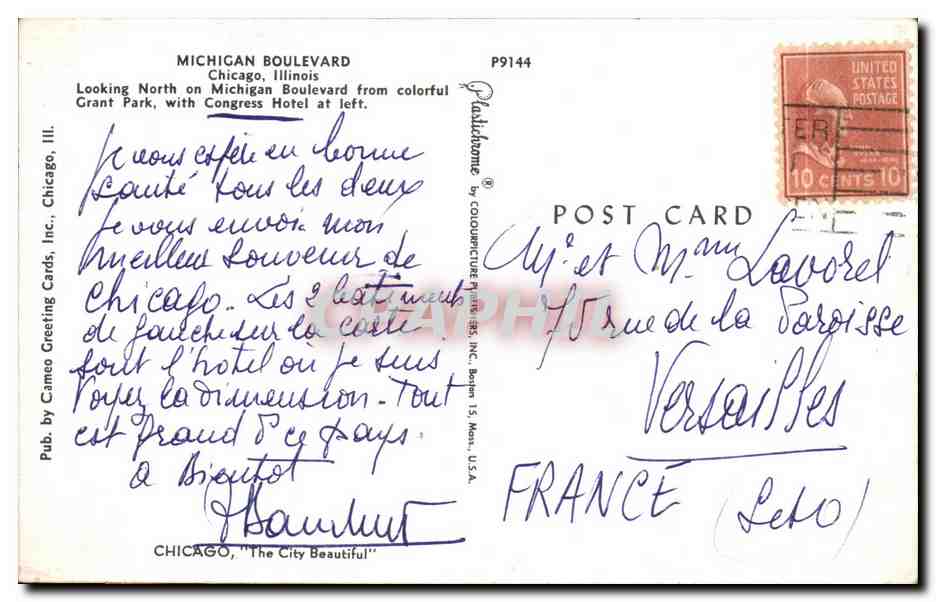 MICHIGAN BOULEVARD
Chicago, Illinois
Looking North on Michigan Boulevard from colorful
Grant Park, with Congress Hotel at left.
P9144
Pub. by Cameo Greeting Cards, Inc., Chicago, Ill.
Je vous espère en bonne
santé tous les deux
Je vous envoie mon
meilleur souvenir de
Chicago. Les 2 batiments
de gauche sur la carte
sont l'hotel ou je suis
Voyez la dimension - Tout
est grand d ce pays.
a Bientot
CHICAGO, "The City Beautiful"
Plastichrome ® by COLOURPICTURE PUBLISHERS, INC., Boston 15, Mass., U.S.A.
UNITED
STATES
POSTAGE
10 CENTS 10
POST CARD
Mr et Mme Lavorel
75 rue de la Paroisse
Versailles
FRANCE (SetO)
CHAPHIL